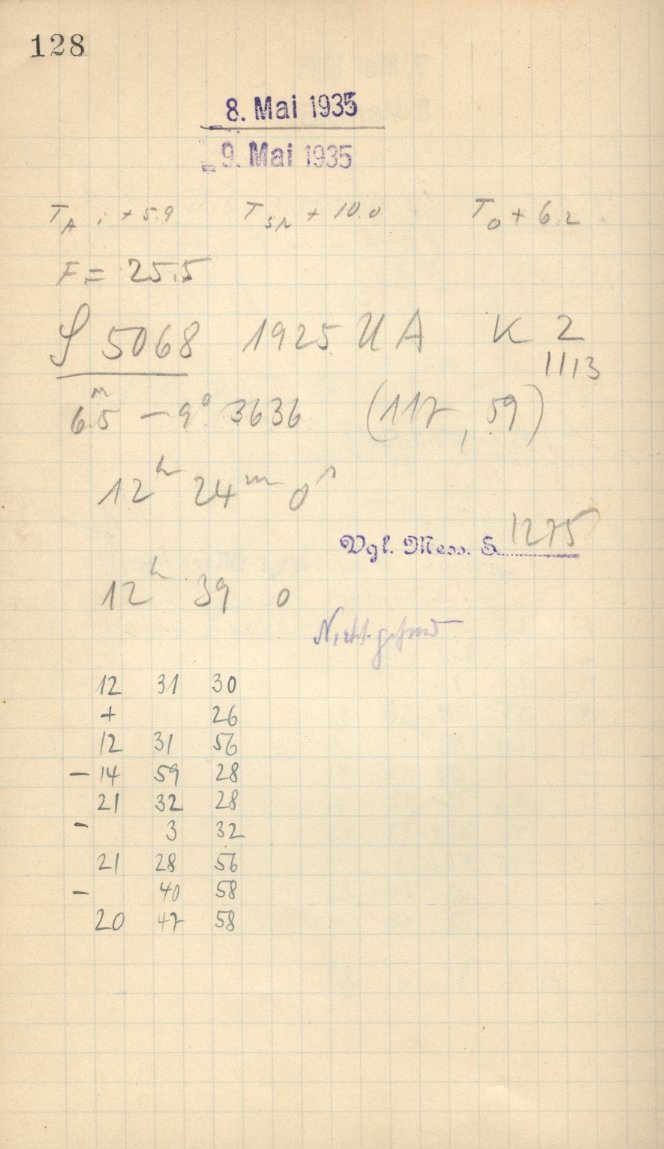 128
8. Mai 1935
9. Mai 1935
T_A : + 5.9 T_SR + 10.0 T_0 + 6.2
F = 25.5
S 5068 1925 UA K 2
1113
6.5ᵐ – 9° 3636 (117, 59)
12ʰ 24ᵐ 0ˢ
Vgl. Mess. S. 1275
12ʰ 39 0
Nicht gefund
12 31 30
+ 26
12 31 56
– 14 59 28
21 32 28
– 3 32
21 28 56
– 40 58
20 47 58